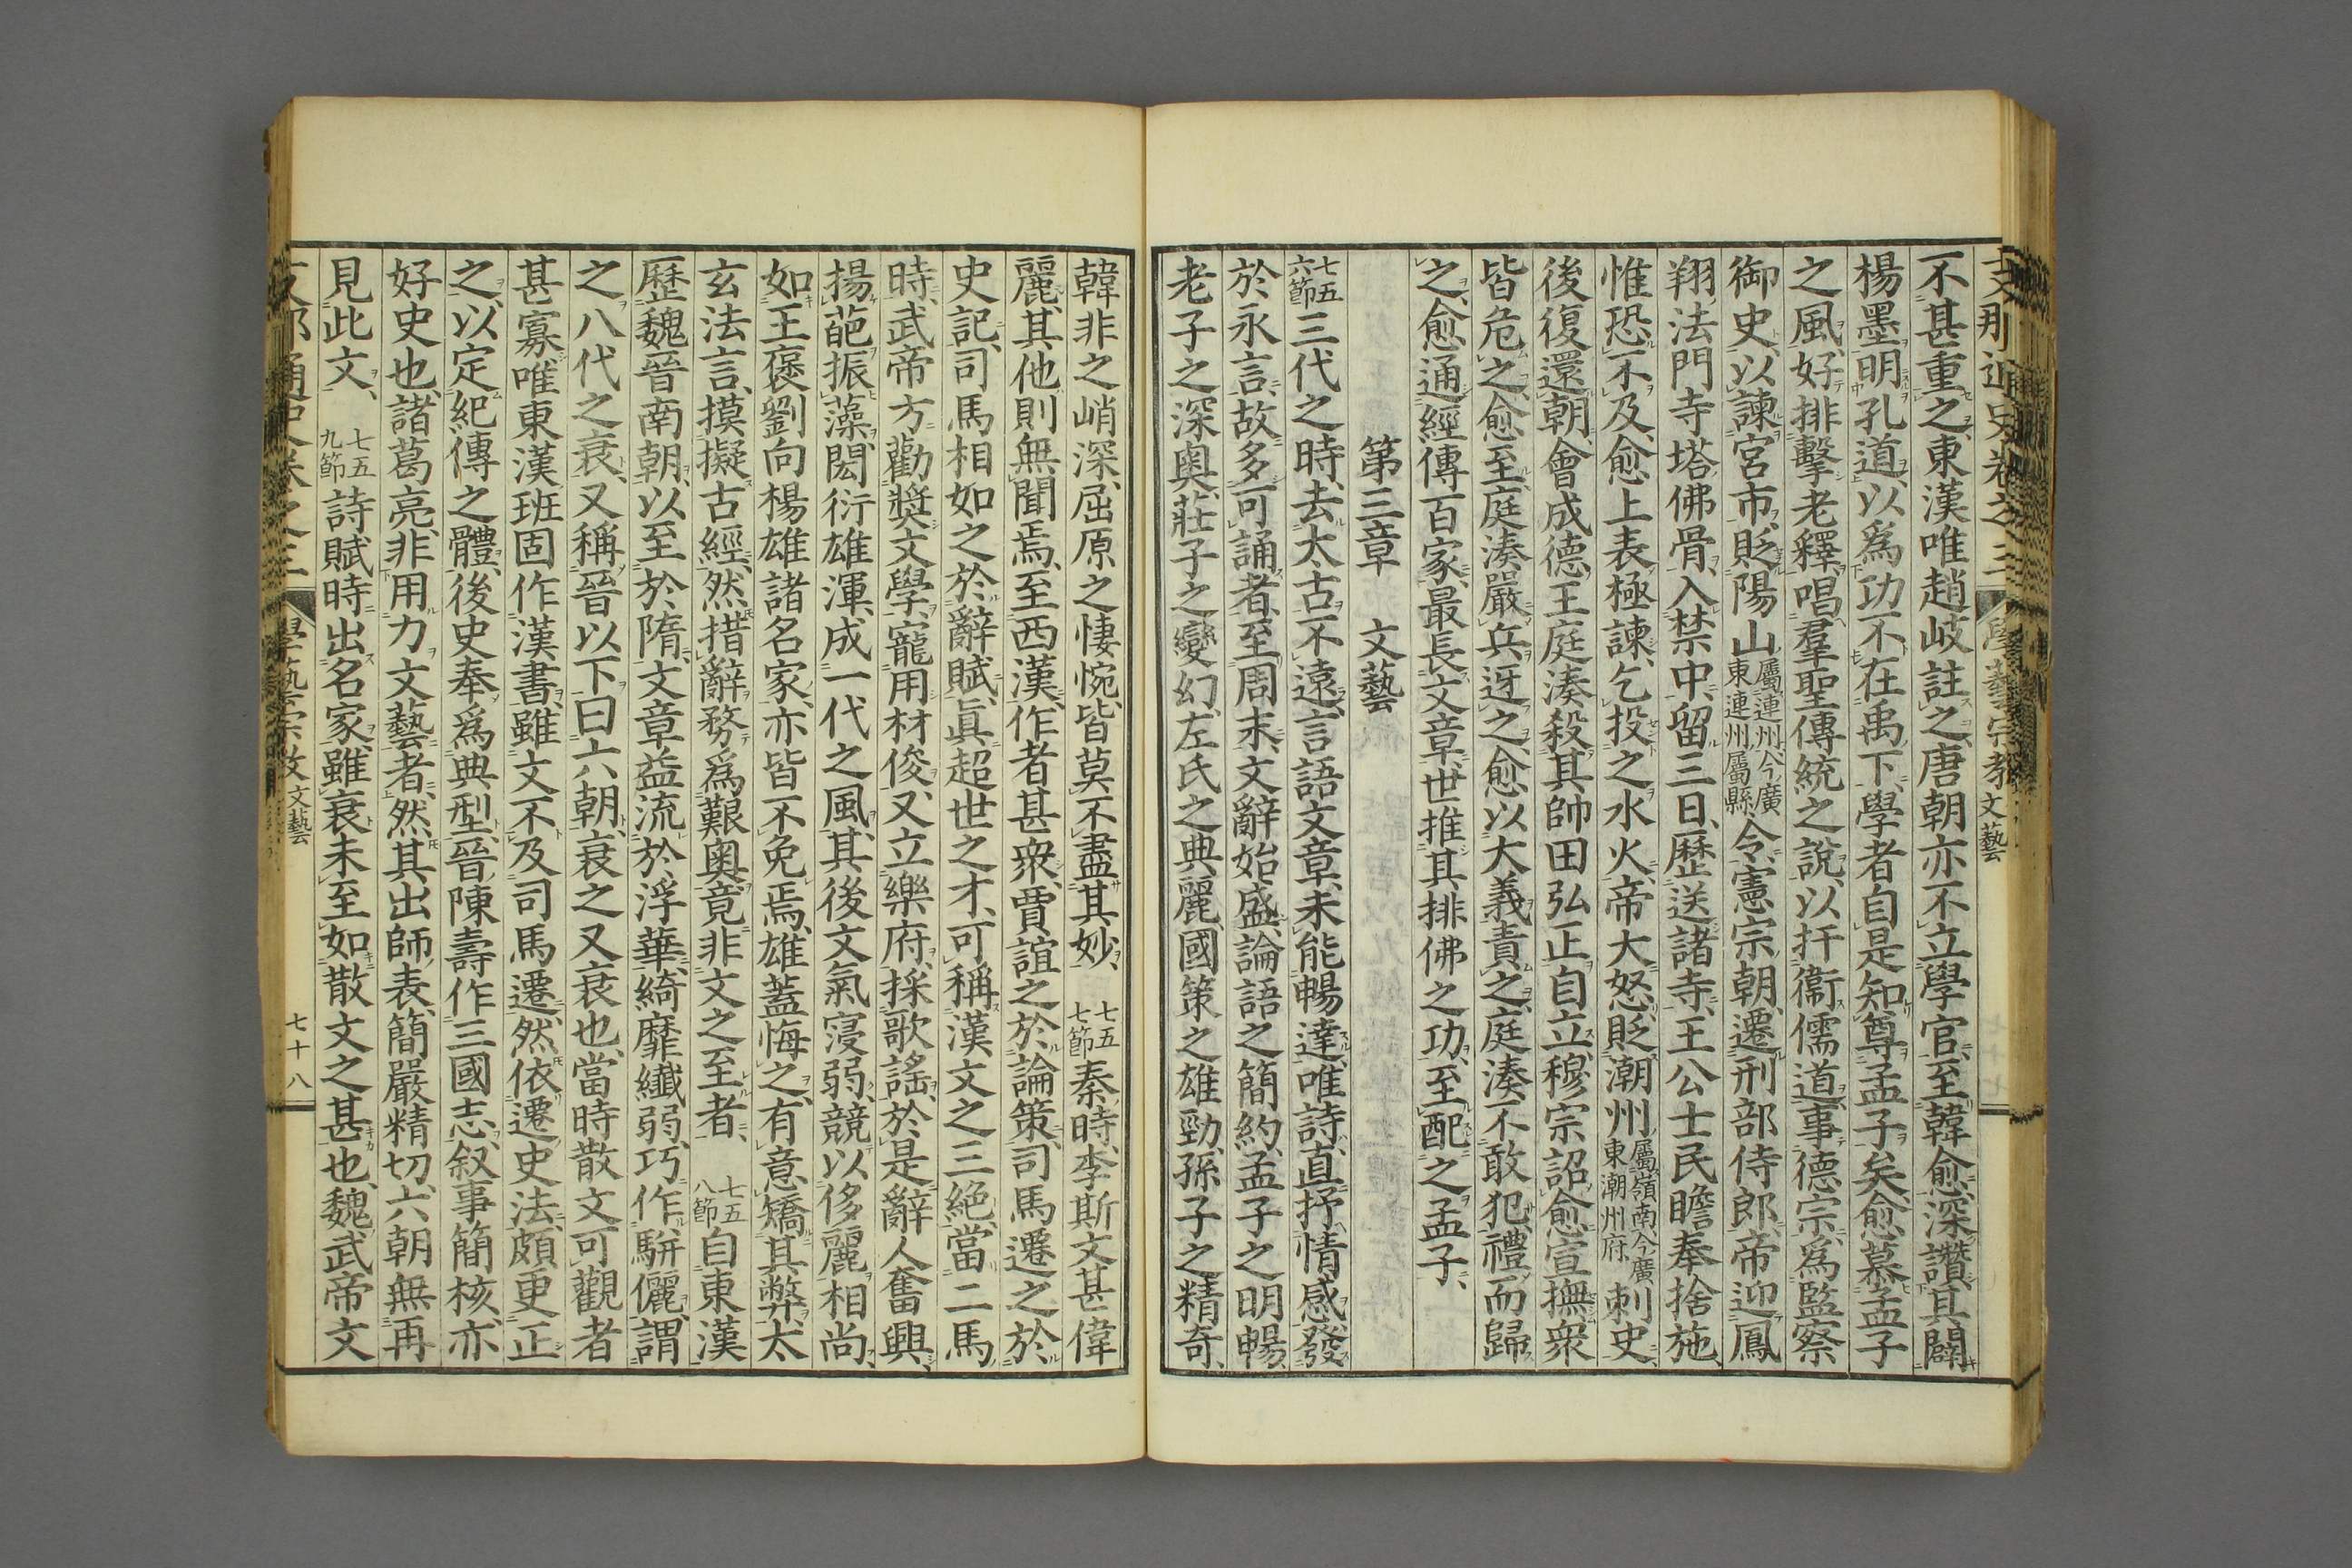 支那通史卷之三 學藝宗教 文藝
不甚重之、東漢唯趙岐註之、唐朝亦不立學官、至韓愈深讚其闢
楊墨明孔道、以爲功不在禹下、學者自是知尊孟子矣、愈慕孟子
之風、好排擊老釋、唱羣聖傳統之說、以扞衞儒道、事德宗、爲監察
御史、以諫宮市、貶陽山屬連州、今廣東連州屬縣、令、憲宗朝、遷刑部侍郎、帝迎鳳
翔法門寺塔佛骨、入禁中、留三日、歷送諸寺、王公士民瞻奉捨施、
惟恐不及、愈上表極諫、乞投之水火、帝大怒、貶潮州屬嶺南、今廣東潮州府、刺史、
後復還朝、會成德王庭湊殺其帥田弘正自立、穆宗詔愈宣撫衆
皆危之、愈至、庭湊嚴兵迓之、愈以大義責之、庭湊不敢犯禮、而歸
之、愈通經傳百家、最長文章、世推其排佛之功、至配之孟子、
第三章 文藝
七五六節 三代之時、去太古不遠、言語文章、未能暢達、唯詩直抒情感、發
於永言、故多可誦者、至周末、文辭始盛、論語之簡約、孟子之明暢、
老子之深奧、莊子之變幻、左氏之典麗、國策之雄勁、孫子之精奇、
韓非之峭深、屈原之悽惋、皆莫不盡其妙、 七五七節 秦時、李斯文甚偉
麗、其他則無聞焉、至西漢、作者甚衆、賈誼之於論策、司馬遷之於
史記、司馬相如之於辭賦、眞超世之才、可稱漢文之三絕、當二馬
時、武帝方勸奬文學、寵用材俊、又立樂府、採歌謠、於是辭人奮興、
揚葩振藻、閎衍雄渾、成一代之風、其後文氣寖弱、競以侈麗相尚、
如王褒劉向楊雄諸名家、亦皆不免焉、雄蓋悔之、有意矯其弊、太
玄法言、摸擬古經、然措辭務爲艱奧、竟非文之至者、 七五八節 自東漢
歷魏晉南朝、以至於隋、文章益流於浮華、綺靡纖弱、巧作駢儷、謂
之八代之衰、又稱晉以下曰六朝、衰之又衰也、當時散文可觀者
甚寡、唯東漢班固作漢書、雖文不及司馬遷、然依遷史法、頗更正
之、以定紀傳之體、後史奉爲典型、晉陳壽作三國志、叙事簡核、亦
好史也、諸葛亮、非用力文藝者、然其出師表、簡嚴精切、六朝無再
見此文、 七五九節 詩賦時出名家、雖衰未至如散文之甚也、魏武帝文
支那通史卷之三 學藝宗教 文藝 七十八